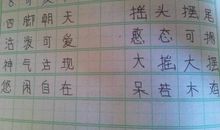 四脚朝天 摇头摆尾
可爱 憨态可掬
神气活现 大摇大摆
悠闲自在 呆若木鸡